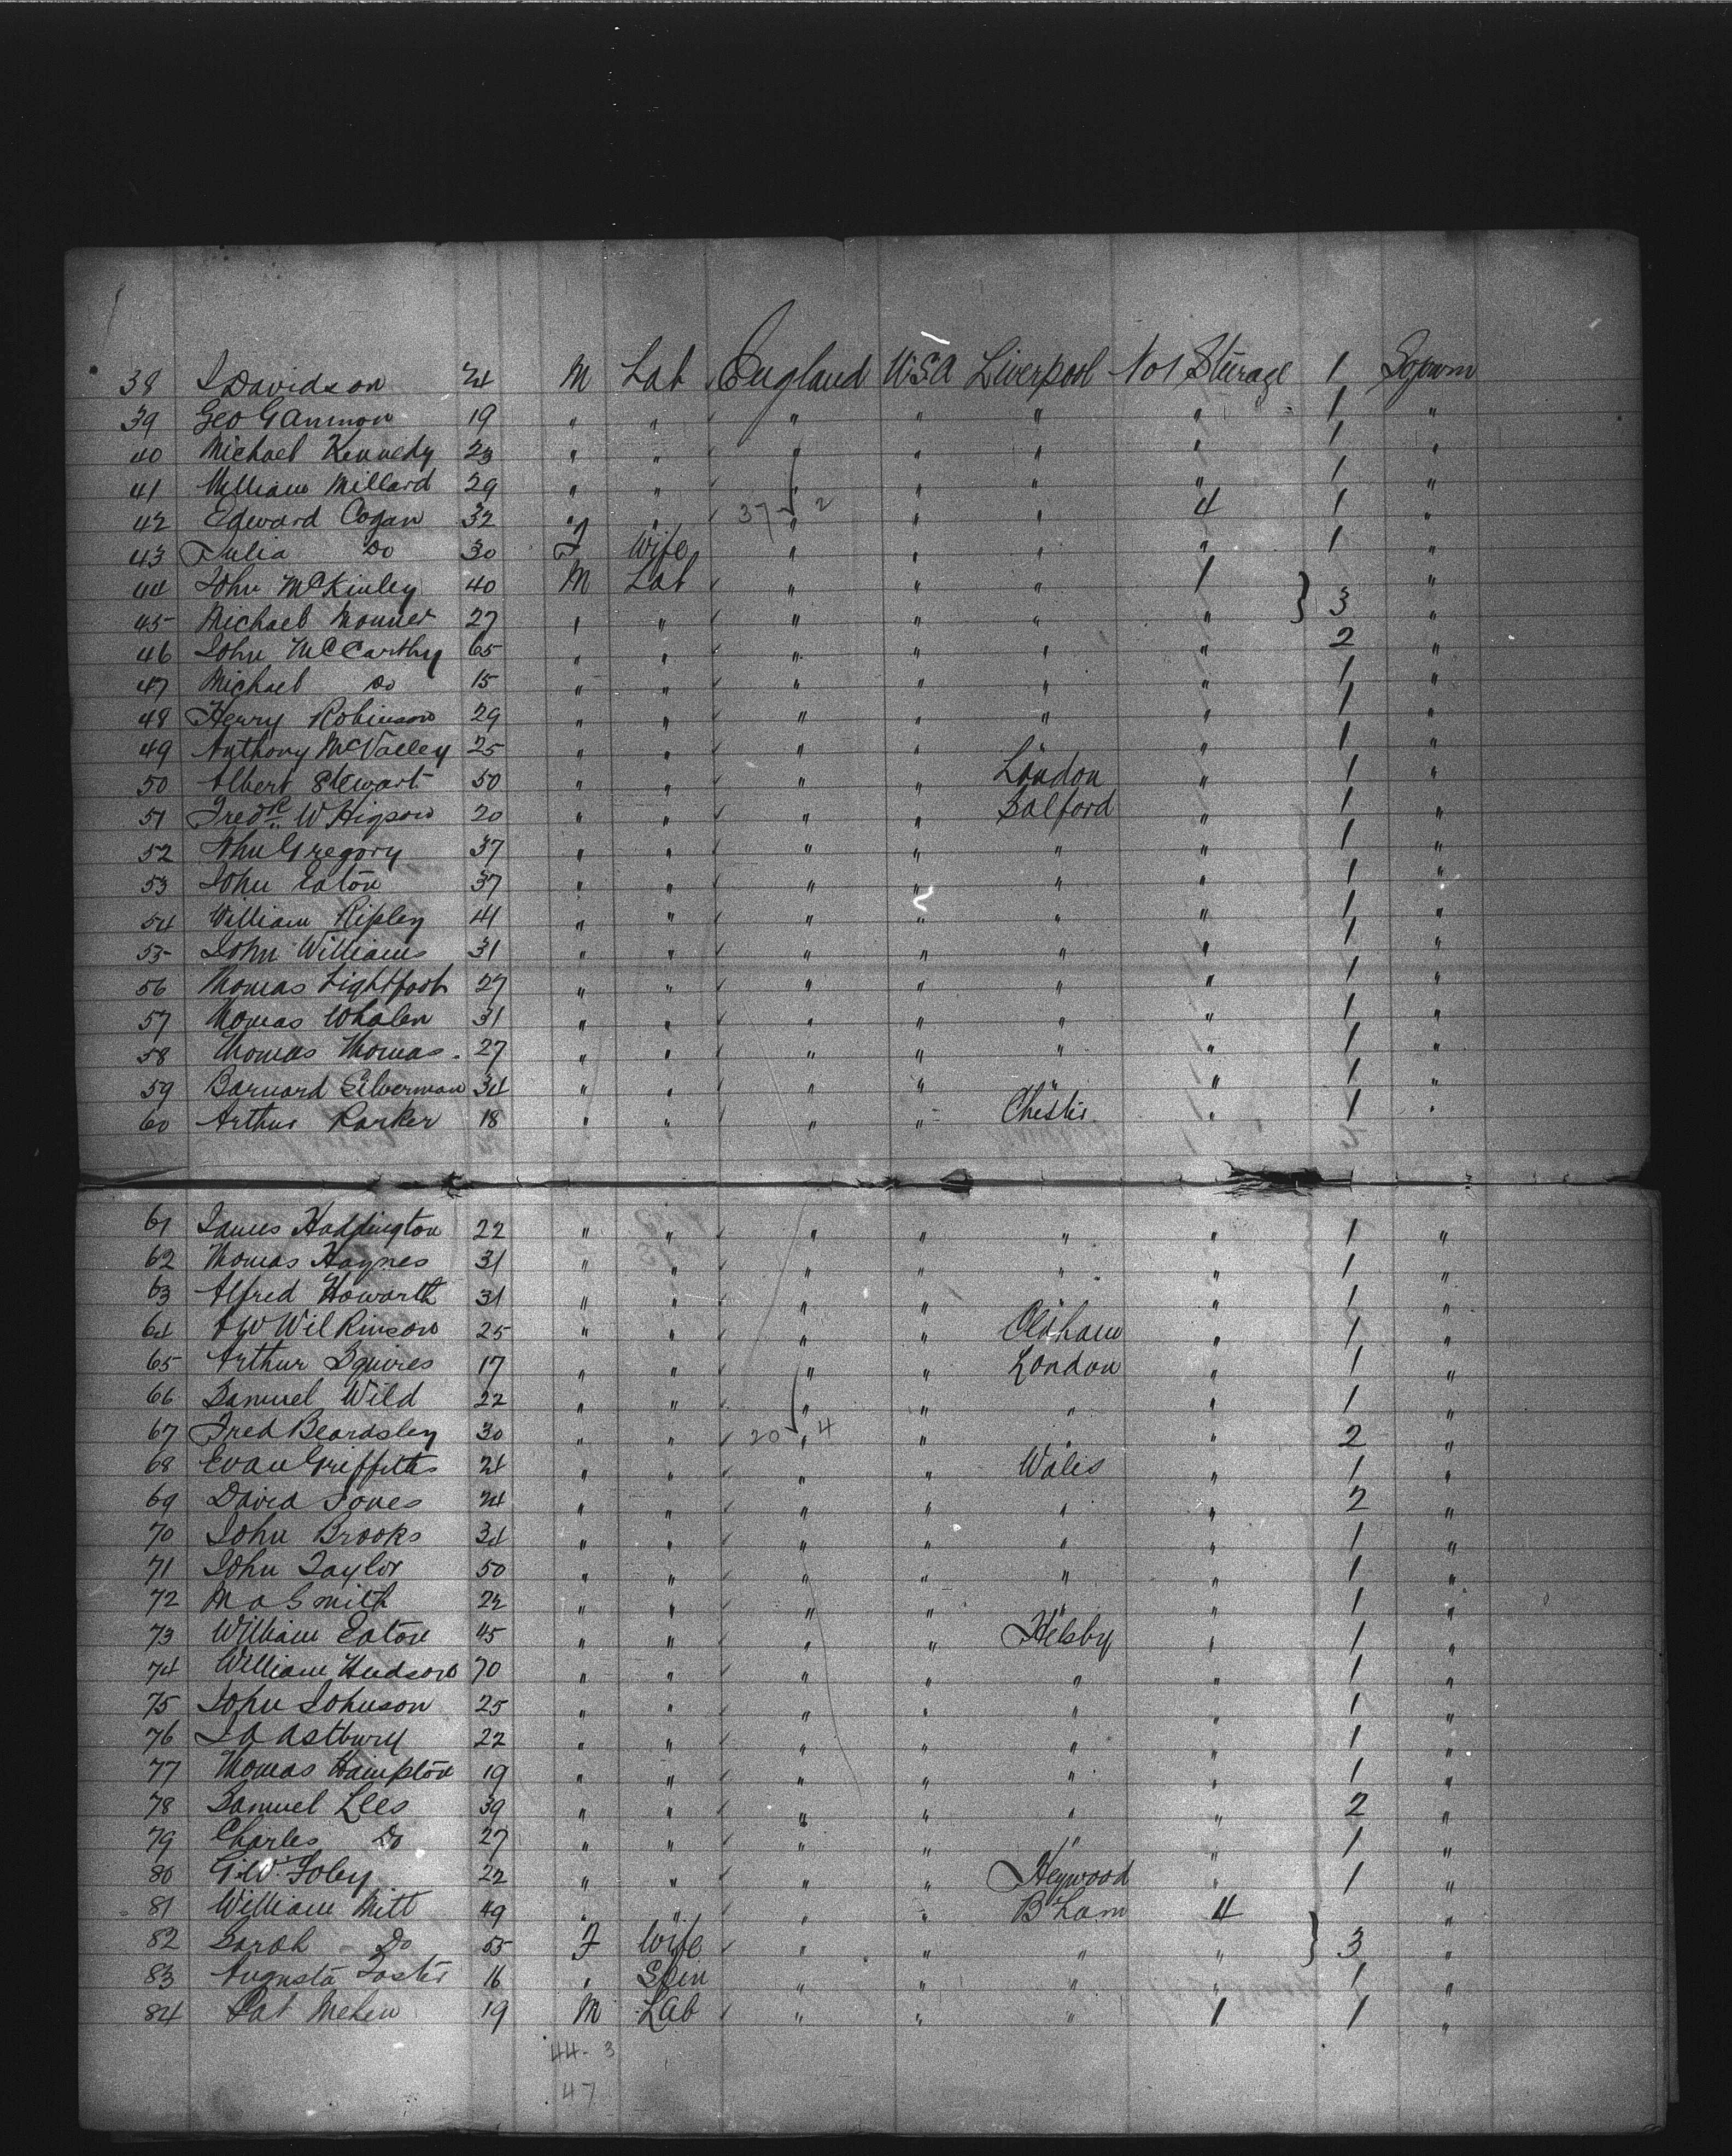 38 J Davidson 24 M Lab England USA Liverpool No 1 Sturage 1 Sojourn
39 Geo Gammon 19 " " " " " " 1 "
40 Michael Kennedy 23 " " " " " " 1 "
41 William Millard 29 " " " " " " 1 "
42 Edward Cogan 32 " " 37 " 2 " " 4 1 "
43 Julia Do 30 F Wife " " " " 1 "
44 John McKinley 40 M Lab " " " 1 "
45 Michael 27 " " " " " " } 3 "
46 John McCarthy 65 " " " " " " 2 "
47 Michael Do 15 " " " " " " 1 "
48 Henry Robinson 29 " " " " " " 1 "
49 Anthony McValley 25 " " " " " " 1 "
50 Albert Stewart 50 " " " " London " 1 "
51 Fredk W Higson 20 " " " " Salford " 1 "
52 John Gregory 37 " " " " " " 1 "
53 John Eaton 37 " " " " " " 1 "
54 William Ripley 41 " " " " " " 1 "
55 John Williams 31 " " " " " " 1 "
56 Thomas Lightfoot 27 " " " " " " 1 "
57 Thomas Whalen 31 " " " " " " 1 "
58 Thomas Thomas. 27 " " " " " " 1 "
59 Barnard Silverman 34 " " " " " " 1 "
60 Arthur Parker 18 " " " " Chester. " 1 "
61 James Haddington 22 " " " " " " 1 "
62 Thomas Haynes 31 " " " " " " 1 "
63 Alfred Howarth 31 " " " " " " 1 "
64 Wilkinson 25 " " " " Oldham " 1 "
65 Arthur Squires 17 " " " " London " 1 "
66 Samuel Wild 22 " " " " " " 1 "
67 Fred Beardsley 30 " " 20 " 4 " " " 2 "
68 Evan Griffiths 24 " " " " Wales " 1 "
69 David Jones 24 " " " " " " 2 "
70 John Brooks 34 " " " " " " 1 "
71 John Taylor 50 " " " " " " 1 "
72 M a Smith 22 " " " " " " 1 "
73 William Eaton 45 " " " " Helsby " 1 "
74 William Hudson 70 " " " " " " 1 "
75 John Johnson 25 " " " " " " 1 "
76 J A Astbury 22 " " " " " " 1 "
77 Thomas Hampton 19 " " " " " " 1 "
78 Samuel Lees 39 " " " " " " 2 "
79 Charles Do 27 " " " " " " 1 "
80 G.W. Foley 22 " " " " Heywood " 1 "
81 William Mitt 49 " " " " B'ham 4 "
82 Sarah Do 55 F Wife " " " " } 3 "
83 Augusta Foster 16 " Spin " " " " 1 "
84 Pat Mehew 19 M Lab " " " 1 1 "
44 - 3
47